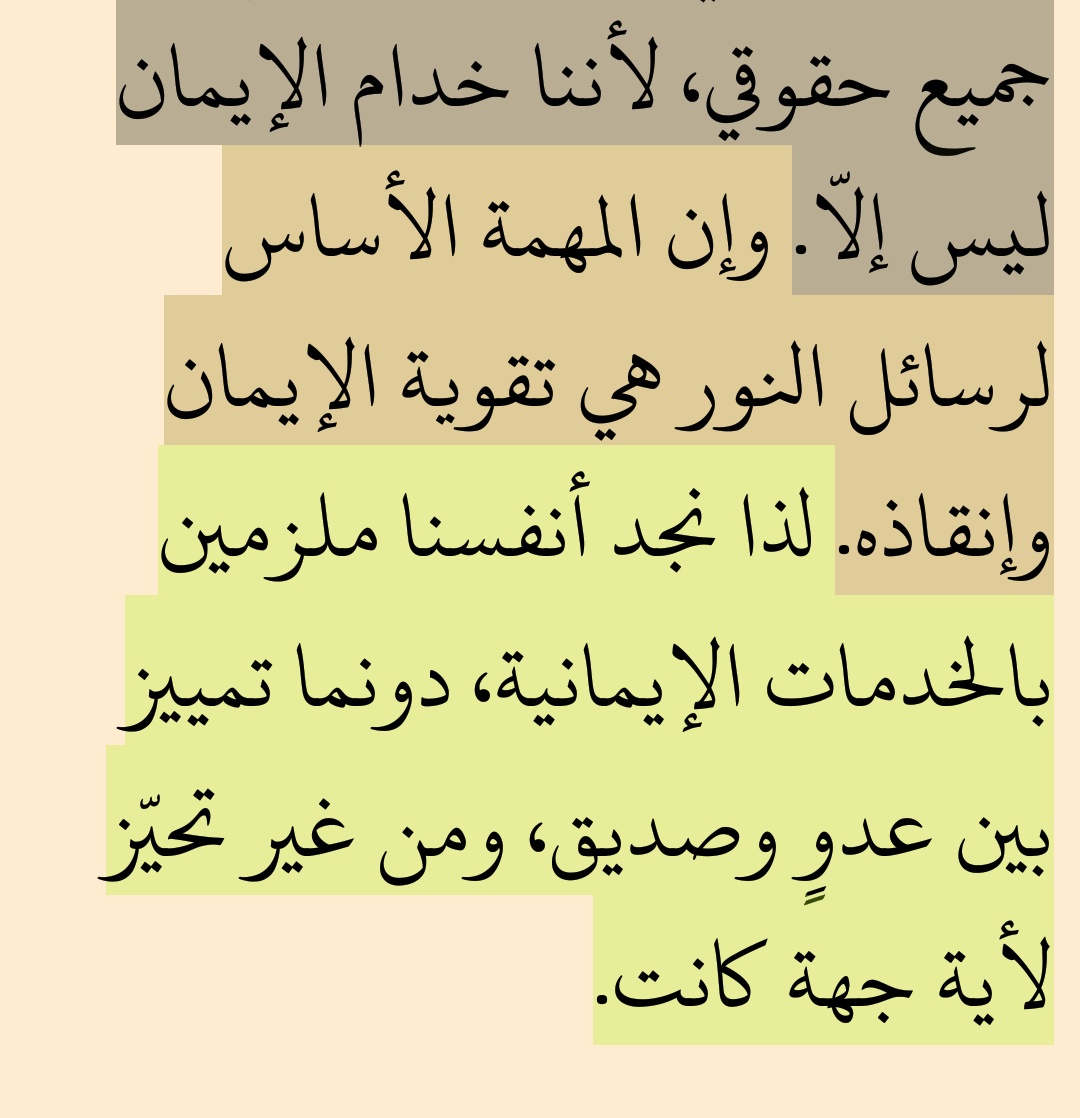 جميع حقوقي، لأننا خدام الإيمان
ليس إلاّ. وإن المهمة الأساس
لرسائل النور هي تقوية الإيمان
وإنقاذه. لذا نجد أنفسنا ملزمين
بالخدمات الإيمانية، دونما تمييز
بين عدوٍ وصديق، ومن غير تحيّز
لأية جهة كانت.